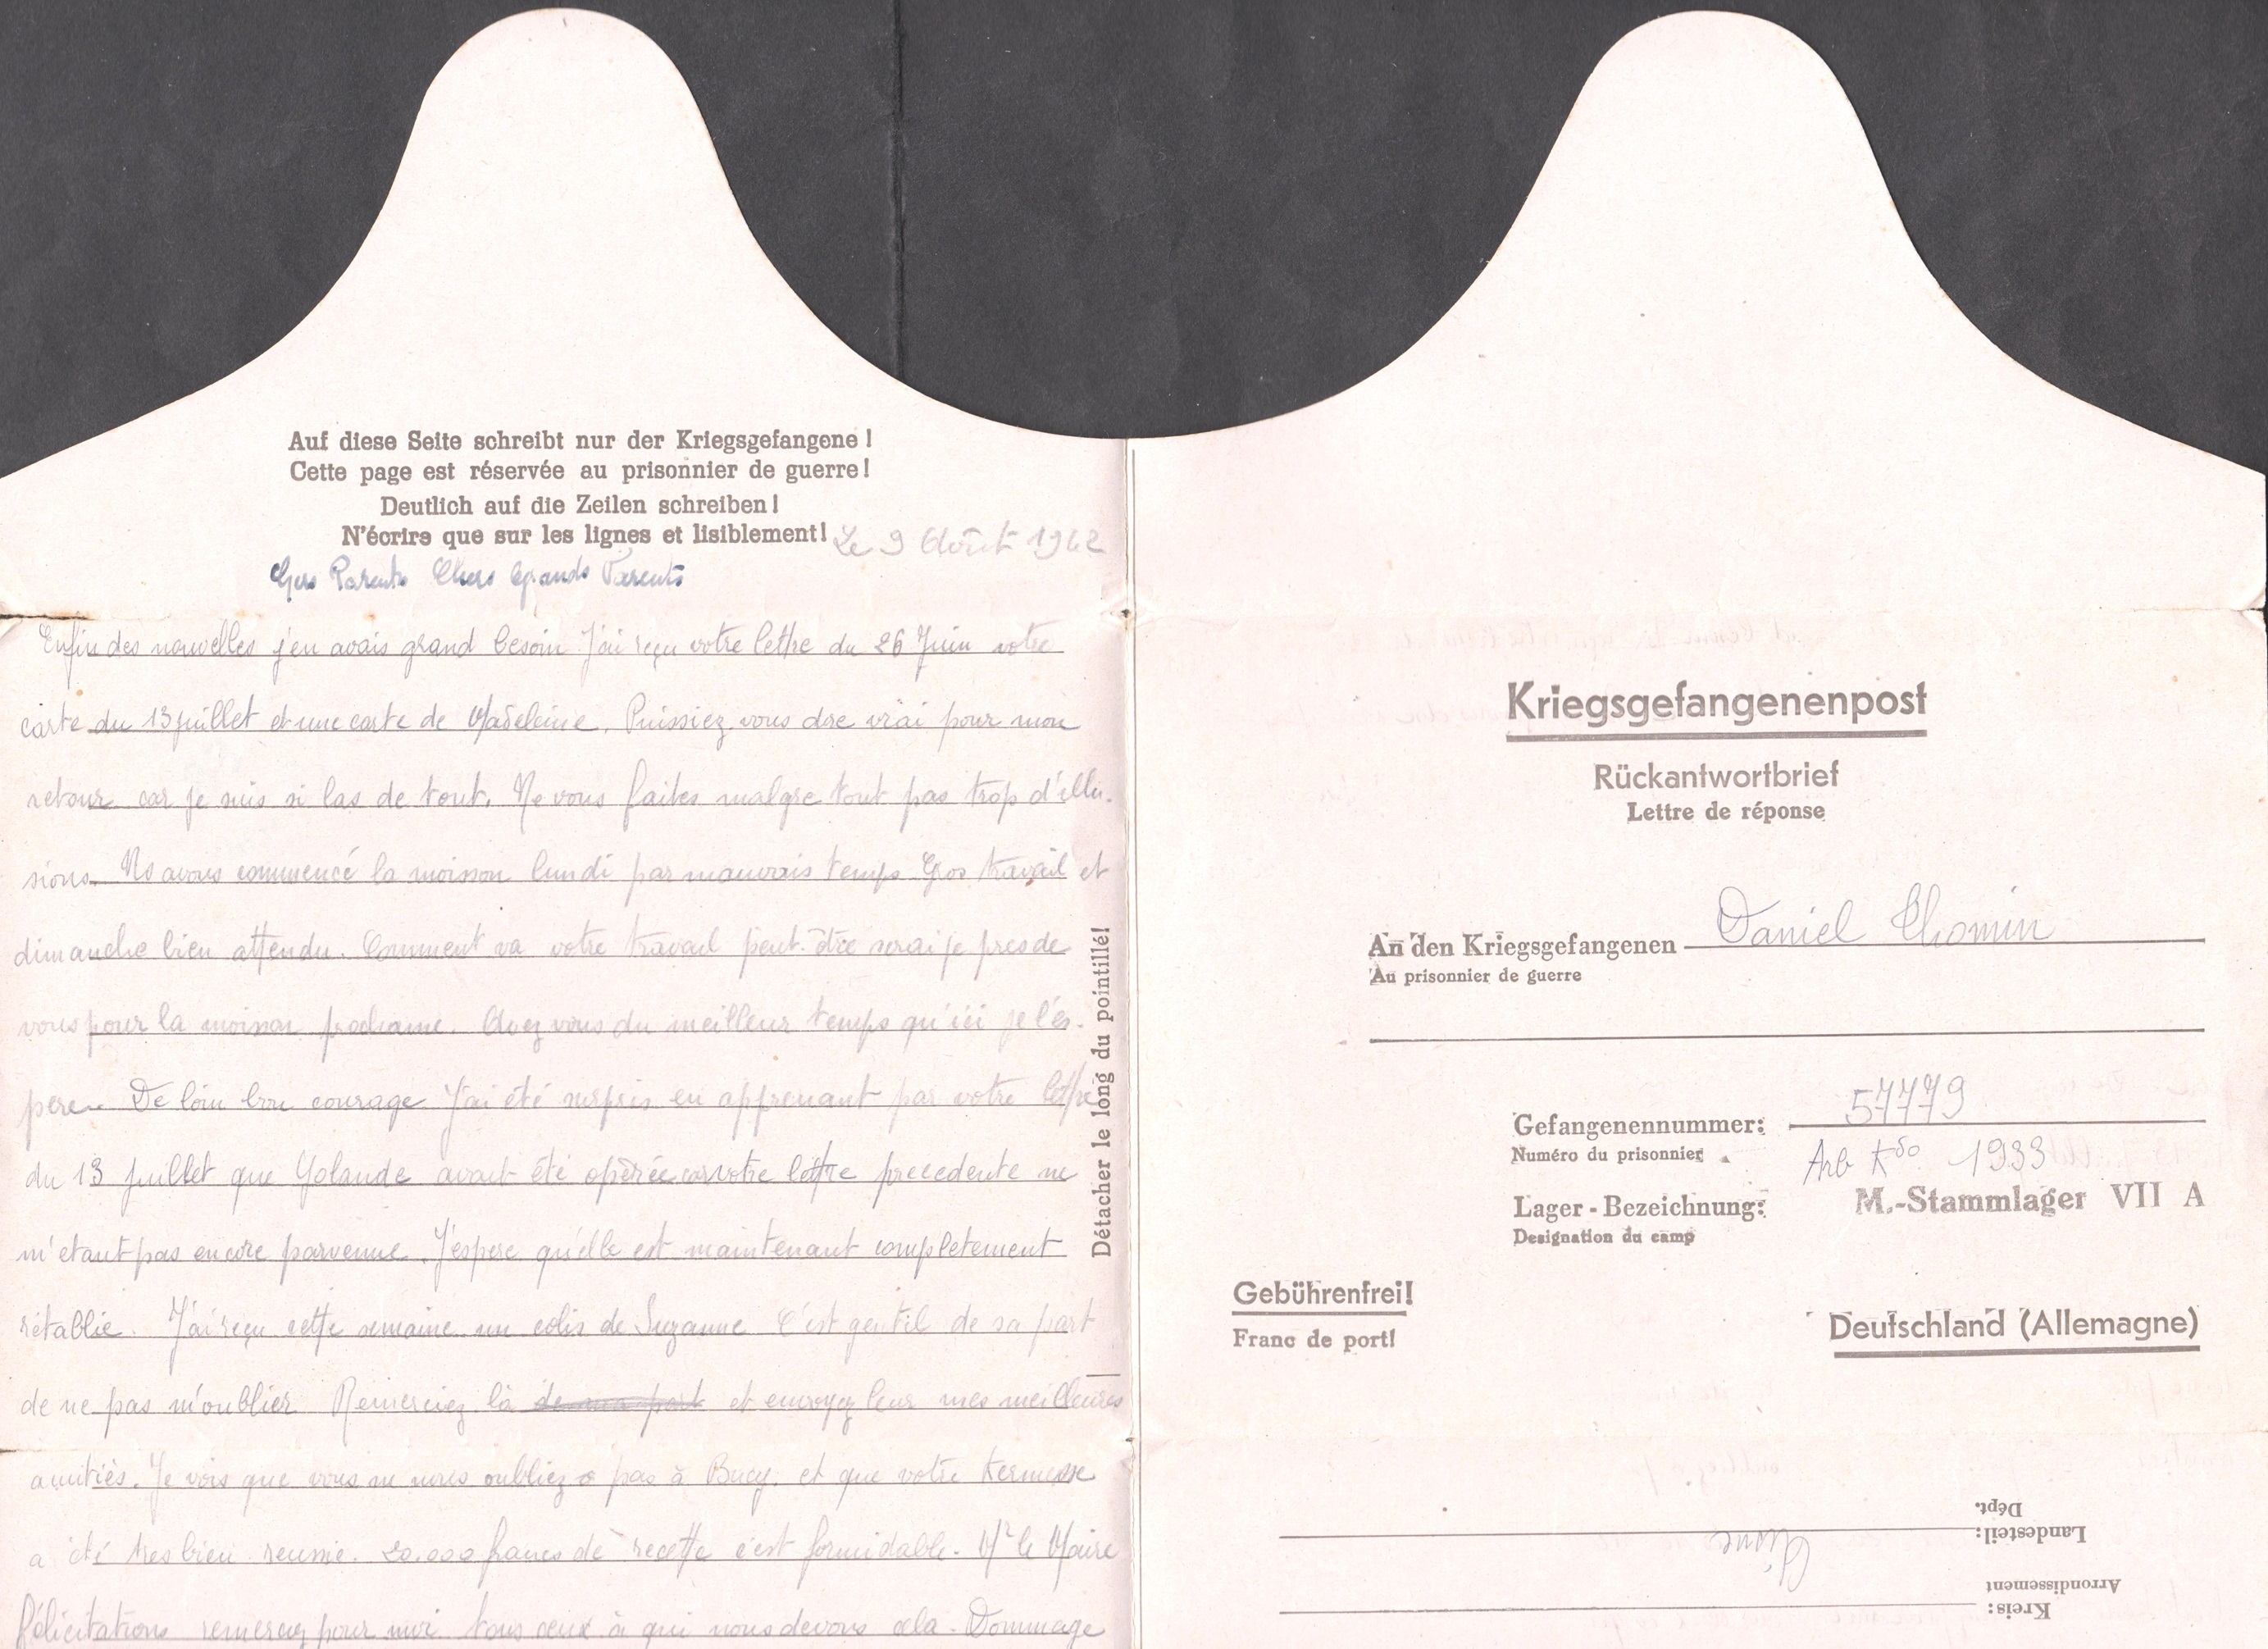 Auf diese Seite schreibt nur der Kriegsgefangene!
Cette page est réservée au prisonnier de guerre!
Deutlich auf die Zeilen schreiben!
N'écrire que sur les lignes et lisiblement!
Le 9 Août 1942
Chers Parents Chers Grands Parents
Enfin des nouvelles j'en avais grand besoin. J'ai reçu votre lettre du 26 Juin votre
carte du 13 juillet et une carte de Madeleine. Puissiez vous dire vrai pour mon
retour car je suis si las de tout. Ne vous faites malgre tout pas trop d'illu-
sions. Ns avons commencé la moisson lundi par mauvais temps Gros travail et
dimanche bien attendu. Comment va votre travail peut-être serai je pres de
vous pour la moisson prochaine. Avez vous du meilleur temps qu'ici je l'es-
pere. De loin bon courage J'ai été surpris en apprenant par votre lettre
du 13 juillet que Yolande avait été opérée car votre lettre precedente ne
m'etant pas encore parvenue. J'espere qu'elle est maintenant completement
rétablie. J'ai reçu cette semaine un colis de Suzanne C'est gentil de sa part
de ne pas m'oublier Remerciez là de ma part et envoyez leur mes meilleures
amitiés. Je vois que vous ne nous oubliez pas à Bucy. et que votre kermesse
a été tres bien reussie. 20.000 francs de recette c'est formidable. Mr le Maire
félicitations remerciez pour moi tous ceux à qui nous devons cela. Dommage
Détacher le long du pointillé!
Kriegsgefangenenpost
Rückantwortbrief
Lettre de réponse
An den Kriegsgefangenen Daniel Thomin
Au prisonnier de guerre
Gefangenennummer: 57779
Numéro du prisonnier
Arb Kdo 1933
Lager-Bezeichnung: M.-Stammlager VII A
Designation du camp
Gebührenfrei!
Franc de port!
Deutschland (Allemagne)
Dépt.
Landesteil: Aisne
Arrondissement
Kreis: